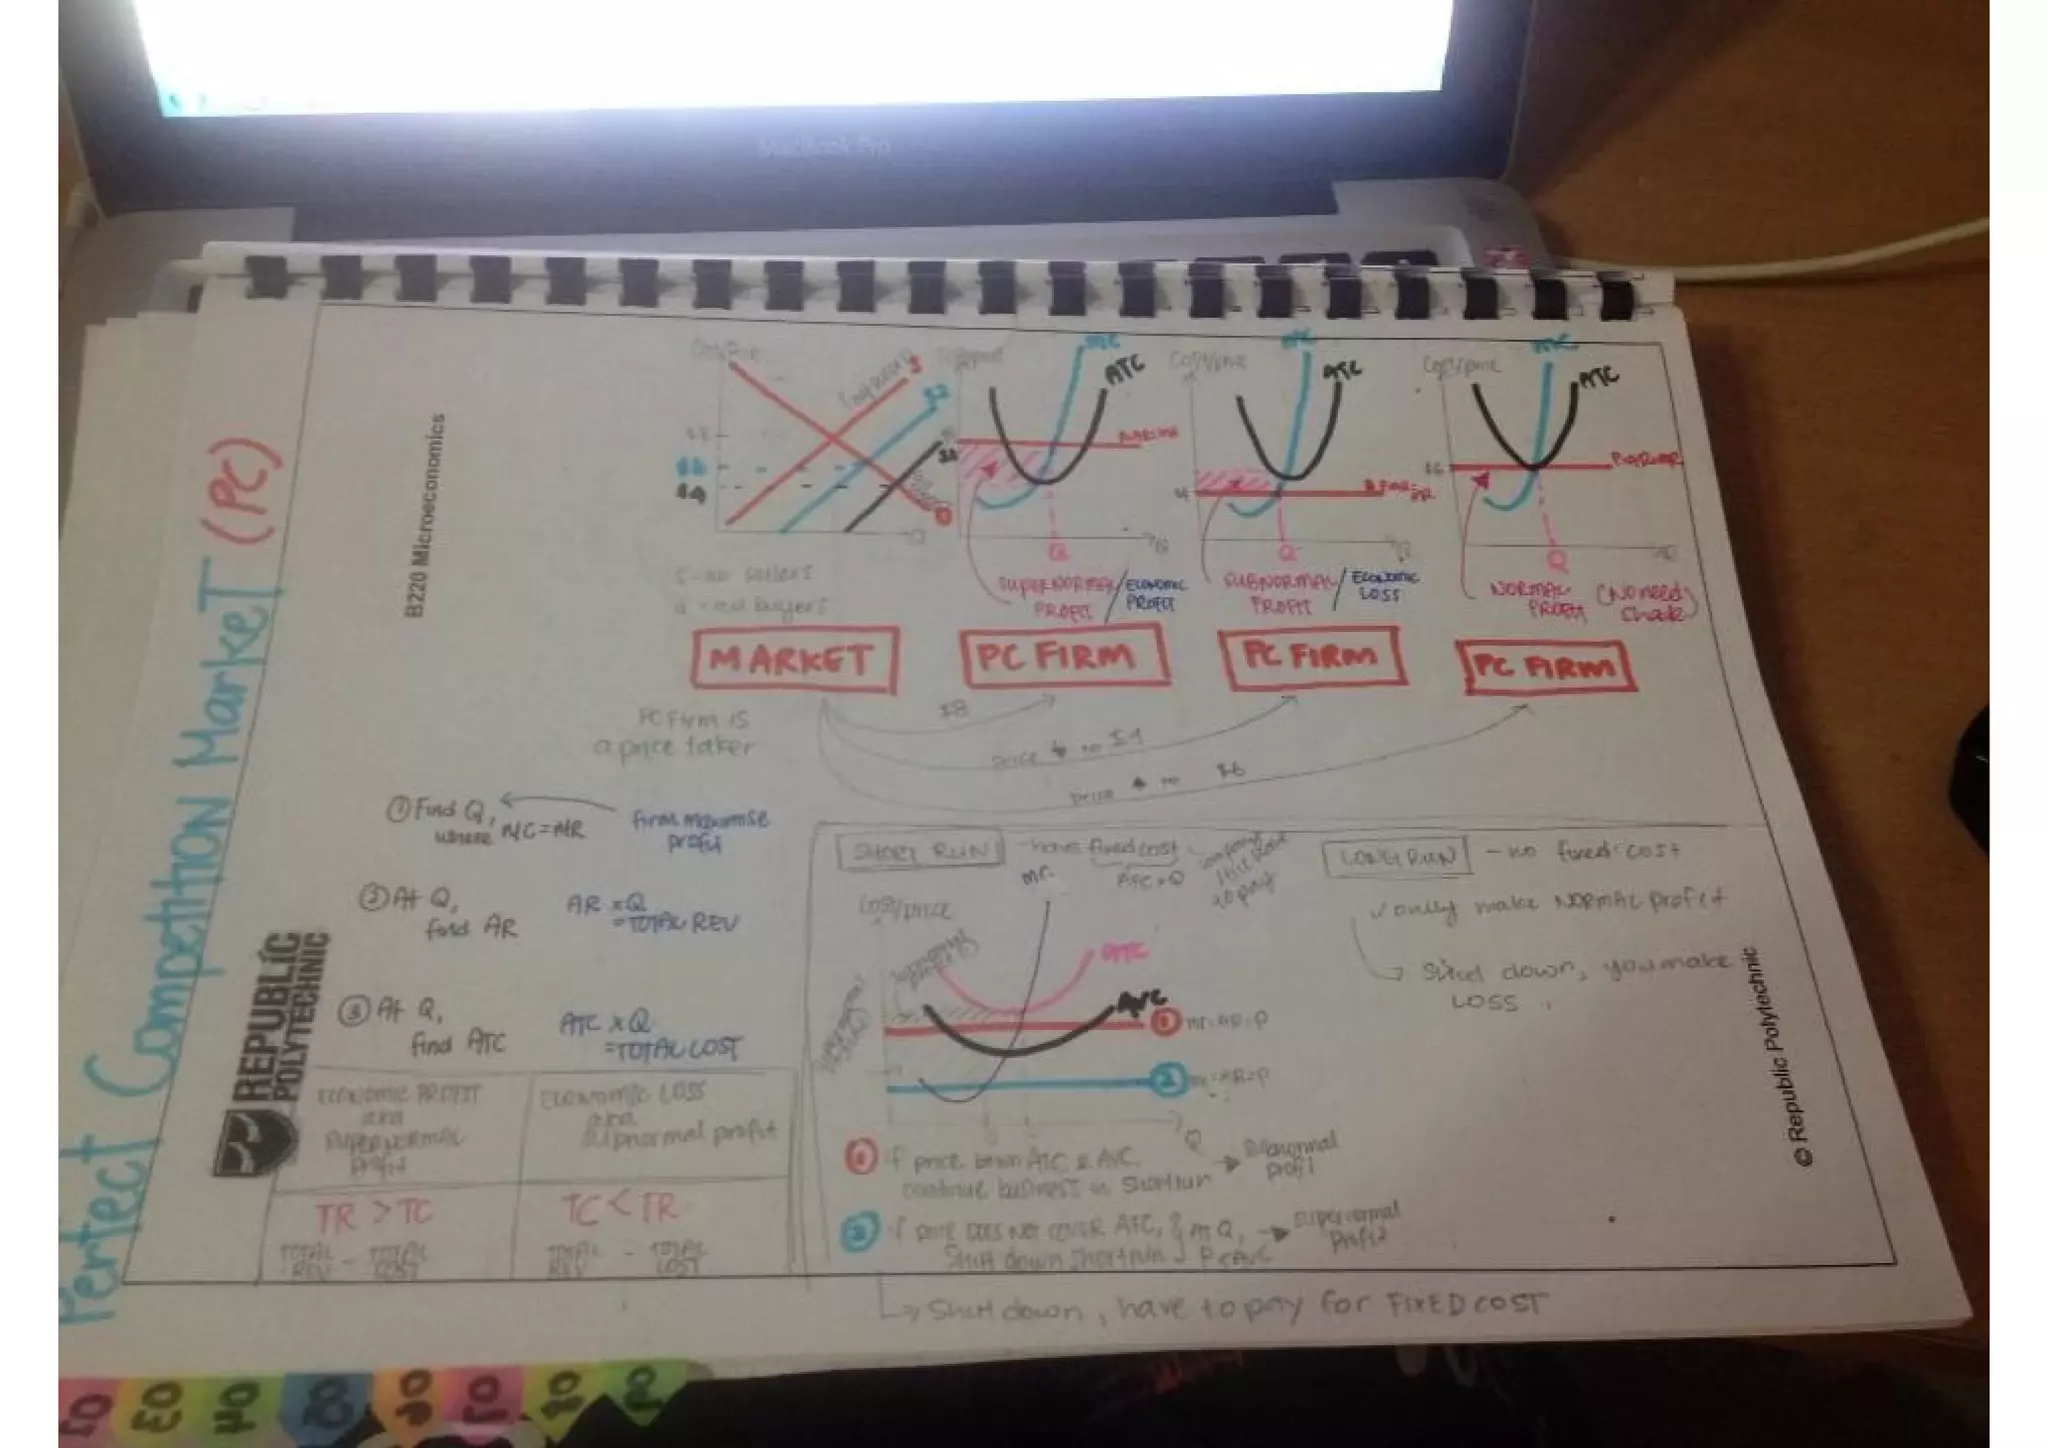 MacBook Pro
Perfect Competition Market (PC)
B220 Microeconomics
REPUBLIC
POLYTECHNIC
© Republic Polytechnic
Cost/price
S
$8
$6
$4
Q
S - no sellers
d - no buyers
MARKET
MC
ATC
Q
Q
SUPERNORMAL / ECONOMIC
PROFIT PROFIT
PC FIRM
Cost/price
MC
ATC
$4
Q
SUBNORMAL / ECONOMIC
PROFIT LOSS
PC FIRM
Cost/price
MC
ATC
$6
Q
NORMAL
PROFIT
(No need)
PC FIRM
PC Firm is
a price taker
$8
price ↓ to $4
price ↑ to $6
① Find Q,
where MC=MR
firm maximise
profit
② At Q,
find AR
AR x Q
=TOTAL REV
③ At Q,
find ATC
ATC x Q
=TOTAL COST
ECONOMIC PROFIT
aka
SUPERNORMAL
Profit
ECONOMIC LOSS
aka
subnormal profit
TR > TC
TC < TR
TOTAL REV - TOTAL COST
TOTAL REV - TOTAL COST
SHORT RUN - have fixed cost
MC
Cost/price
ATC
AVC
① MR=AR=P
② MR=AR=P
Q
① if price btwn ATC & AVC,
continue business in shortrun
→ Subnormal
profit
② if price DOES NOT COVER AFC, & At Q,
Shut down shortrun P<AVC
→ Supernormal
profit
↳ Shut down, have to pay for FIXED COST
LONG RUN - no fixed cost
✓ only make NORMAL profit
→ Shut down, you make
LOSS.
03